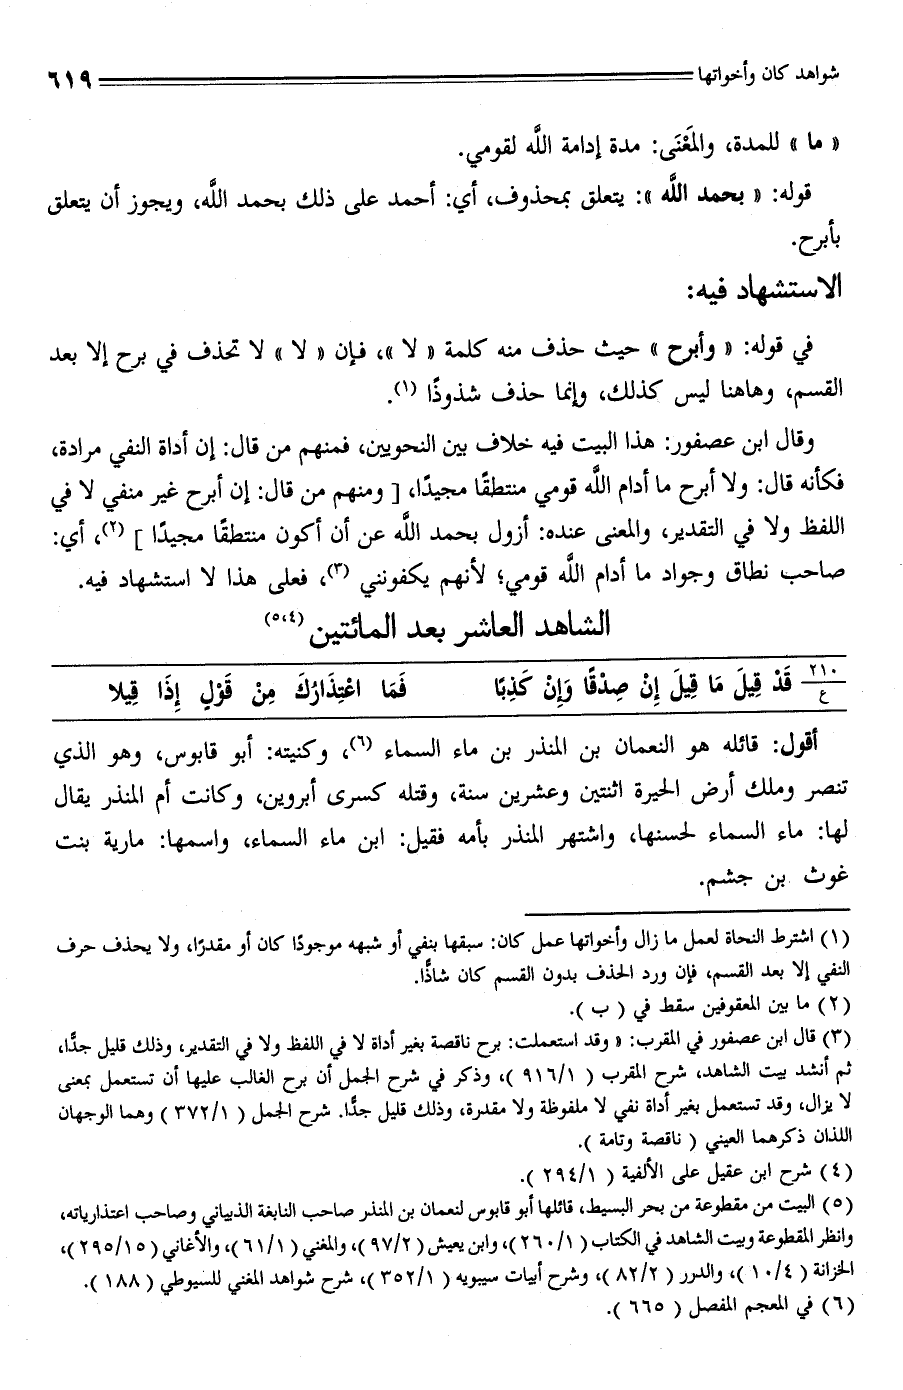 شواهد كان وأخواتها ٦١٩
« ما » للمدة، والمَعْنَى: مدة إدامة اللَّه لقومي.
قوله: « بحمد اللَّه »: يتعلق بمحذوف، أي: أحمد على ذلك بحمد اللَّه، ويجوز أن يتعلق
بأبرح.
الاستشهاد فيه:
في قوله: « وأبرح » حيث حذف منه كلمة « لا »، فإن « لا » لا تحذف في برح إلا بعد
القسم، وهاهنا ليس كذلك، وإنما حذف شذوذًا (١).
وقال ابن عصفور: هذا البيت فيه خلاف بين النحويين، فمنهم من قال: إن أداة النفي مرادة،
فكأنه قال: ولا أبرح ما أدام اللَّه قومي منتطقًا مجيدًا، [ ومنهم من قال: إن أبرح غير منفي لا في
اللفظ ولا في التقدير، والمعنى عنده: أزول بحمد اللَّه عن أن أكون منتطقًا مجيدًا ] (٢)، أي:
صاحب نطاق وجواد ما أدام اللَّه قومي؛ لأنهم يكفونني (٣)، فعلى هذا لا استشهاد فيه.
الشاهد العاشر بعد المائتين (٤،٥)
٢١٠
ع
قَدْ قِيلَ مَا قِيلَ إِنْ صِدْقًا وَإِنْ كَذِبًا فَمَا اعْتِذَارُكَ مِنْ قَوْلٍ إِذَا قِيلا
أقول: قائله هو النعمان بن المنذر بن ماء السماء (٦)، وكنيته: أبو قابوس، وهو الذي
تنصر وملك أرض الحيرة اثنتين وعشرين سنة، وقتله كسرى أبروين، وكانت أم المنذر يقال
لها: ماء السماء لحسنها، واشتهر المنذر بأمه فقيل: ابن ماء السماء، واسمها: مارية بنت
غوث بن جشم.
(١) اشترط النحاة لعمل ما زال وأخواتها عمل كان: سبقها بنفي أو شبهه موجودًا كان أو مقدرًا، ولا يحذف حرف
النفي إلا بعد القسم، فإن ورد الحذف بدون القسم كان شاذًّا.
(٢) ما بين المعقوفين سقط في ( ب ).
(٣) قال ابن عصفور في المقرب: « وقد استعملت: برح ناقصة بغير أداة لا في اللفظ ولا في التقدير، وذلك قليل جدًّا،
ثم أنشد بيت الشاهد، شرح المقرب ( ٩١٦/١ )، وذكر في شرح الجمل أن برح الغالب عليها أن تستعمل بمعنى
لا يزال، وقد تستعمل بغير أداة نفي لا ملفوظة ولا مقدرة، وذلك قليل جدًّا. شرح الجمل ( ٣٧٢/١ ) وهما الوجهان
اللذان ذكرهما العيني ( ناقصة وتامة ).
(٤) شرح ابن عقيل على الألفية ( ٢٩٤/١ ).
(٥) البيت من مقطوعة من بحر البسيط، قائلها أبو قابوس لنعمان بن المنذر صاحب النابغة الذبياني وصاحب اعتذارياته،
وانظر المقطوعة وبيت الشاهد في الكتاب ( ٢٦٠/١ )، وابن يعيش ( ٩٧/٢ )، والمغني ( ٦١/١ )، والأغاني ( ٢٩٥/١٥ )،
الخزانة ( ١٠/٤ )، والدرر ( ٨٢/٢ )، وشرح أبيات سيبويه ( ٣٥٢/١ )، شرح شواهد المغني للسيوطي ( ١٨٨ ).
(٦) في المعجم المفصل ( ٦٦٥ ).